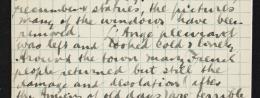 recumbent statues, the pictures
many of the windows have been
removed. L'Ange pleureur
was left and looked cold & lonely.
Around the town many French
people returned but still the
damage and desolation after
the Amiens of old days are terrible